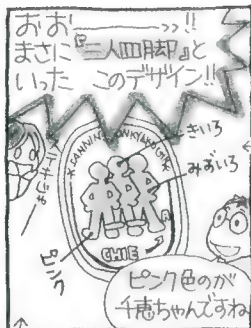 おお――――>>!!
まさに『三人四脚』と
いった このデザイン!!
きいろ
みずいろ
ピンク
CHIE
ピンク色のが
千恵ちゃんですね